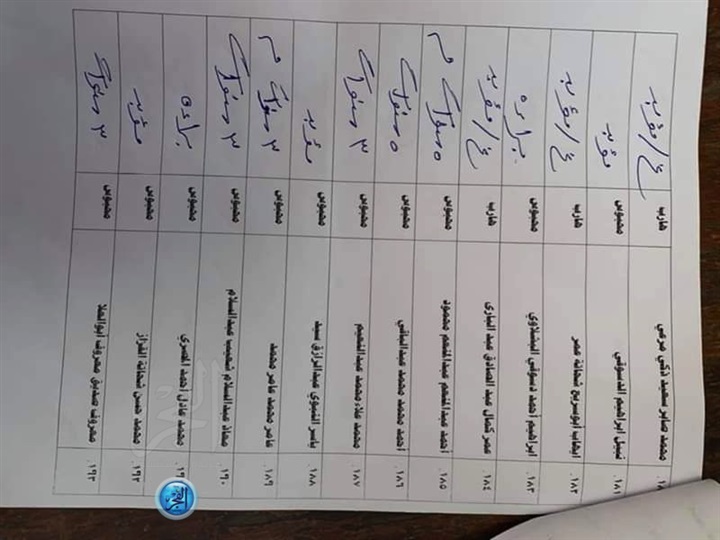 محمد صابر سعيد ذكي مرعي هارب غ/مؤبد
١٨١. نبيل ابراهيم الدسوقي محبوس مؤبد
١٨٢. ايهاب ابوسريع شحاتة عمر هارب غ/مؤبد
١٨٣. ابراهيم أحمد دسوقي البشلاوي محبوس براءة
١٨٤. عمر كمال عبد الصادق عبد البارى هارب غ/مؤبد
١٨٥. أحمد عبدالمنعم عبدالمنعم محمود محبوس ٥ سنوات م
١٨٦. أحمد محمد محمد عبدالباقي محبوس ٥ سنوات
١٨٧. محمد علاء محمد عبدالنعيم محبوس ٣ سنوات
١٨٨. ياسر النبوي عبدالرازق سيد محبوس مؤبد
١٨٩. عامر محمد عامر محمد محبوس ٣ سنوات م
١٩٠. معاذ عبدالسلام شعيب عبدالسلام محبوس ٣ سنوات
محمد عادل أحمد المصري محبوس براءة
١٩٢. محمد حسن شحاتة القزاز محبوس مؤبد
١٩٣. معروف صديق معروف ابوالعلا محبوس ٣ سنوات